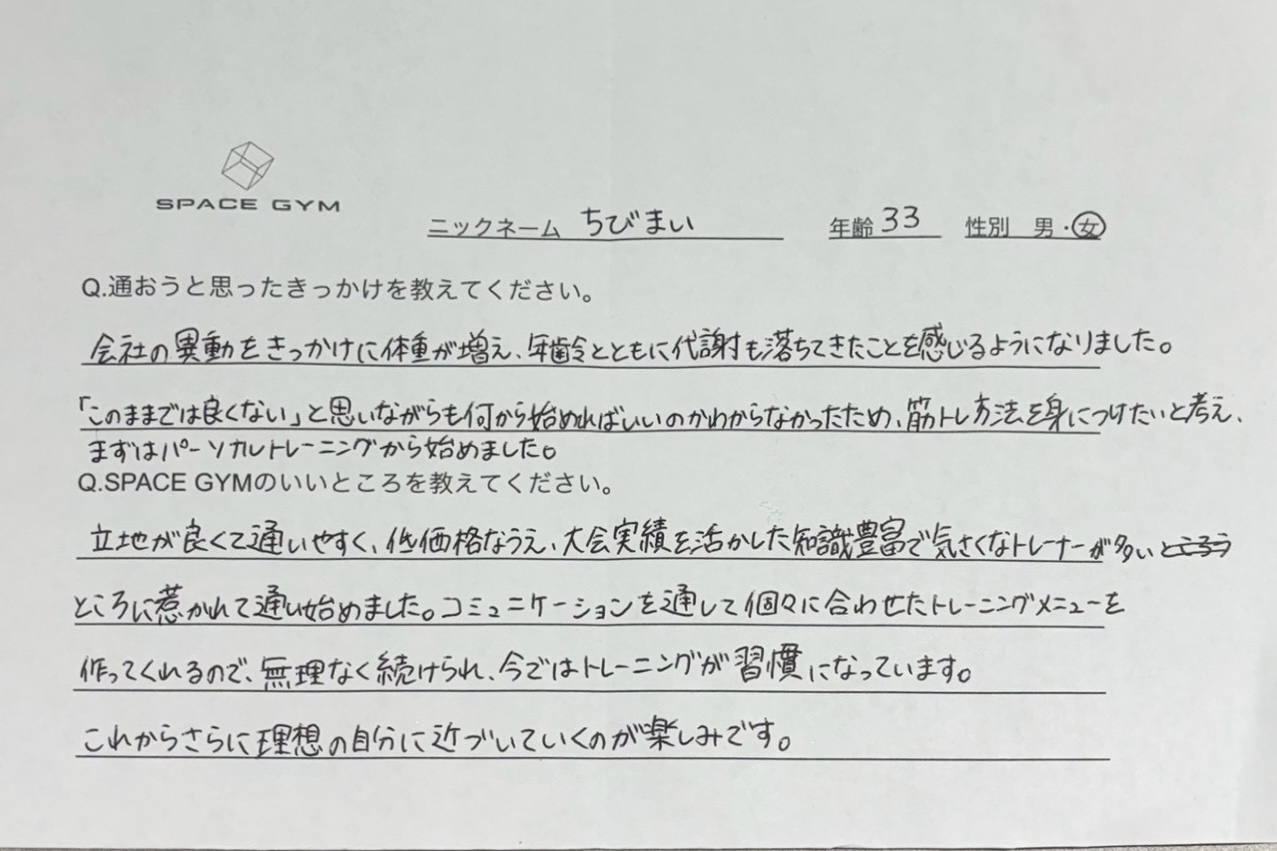 SPACE GYM
ニックネーム ちびまい 年齢 33 性別 男・女
Q.通おうと思ったきっかけを教えてください。
会社の異動をきっかけに体重が増え、年齢とともに代謝も落ちてきたことを感じるようになりました。
「このままでは良くない」と思いながらも何から始めればいいのかわからなかったため、筋トレ方法を身につけたいと考え、
まずはパーソナルトレーニングから始めました。
Q.SPACE GYMのいいところを教えてください。
立地が良くて通いやすく、低価格なうえ、大会実績を活かした知識豊富で気さくなトレーナーが多い
ところに惹かれて通い始めました。コミュニケーションを通して個々に合わせたトレーニングメニューを
作ってくれるので、無理なく続けられ、今ではトレーニングが習慣になっています。
これからさらに理想の自分に近づいていくのが楽しみです。